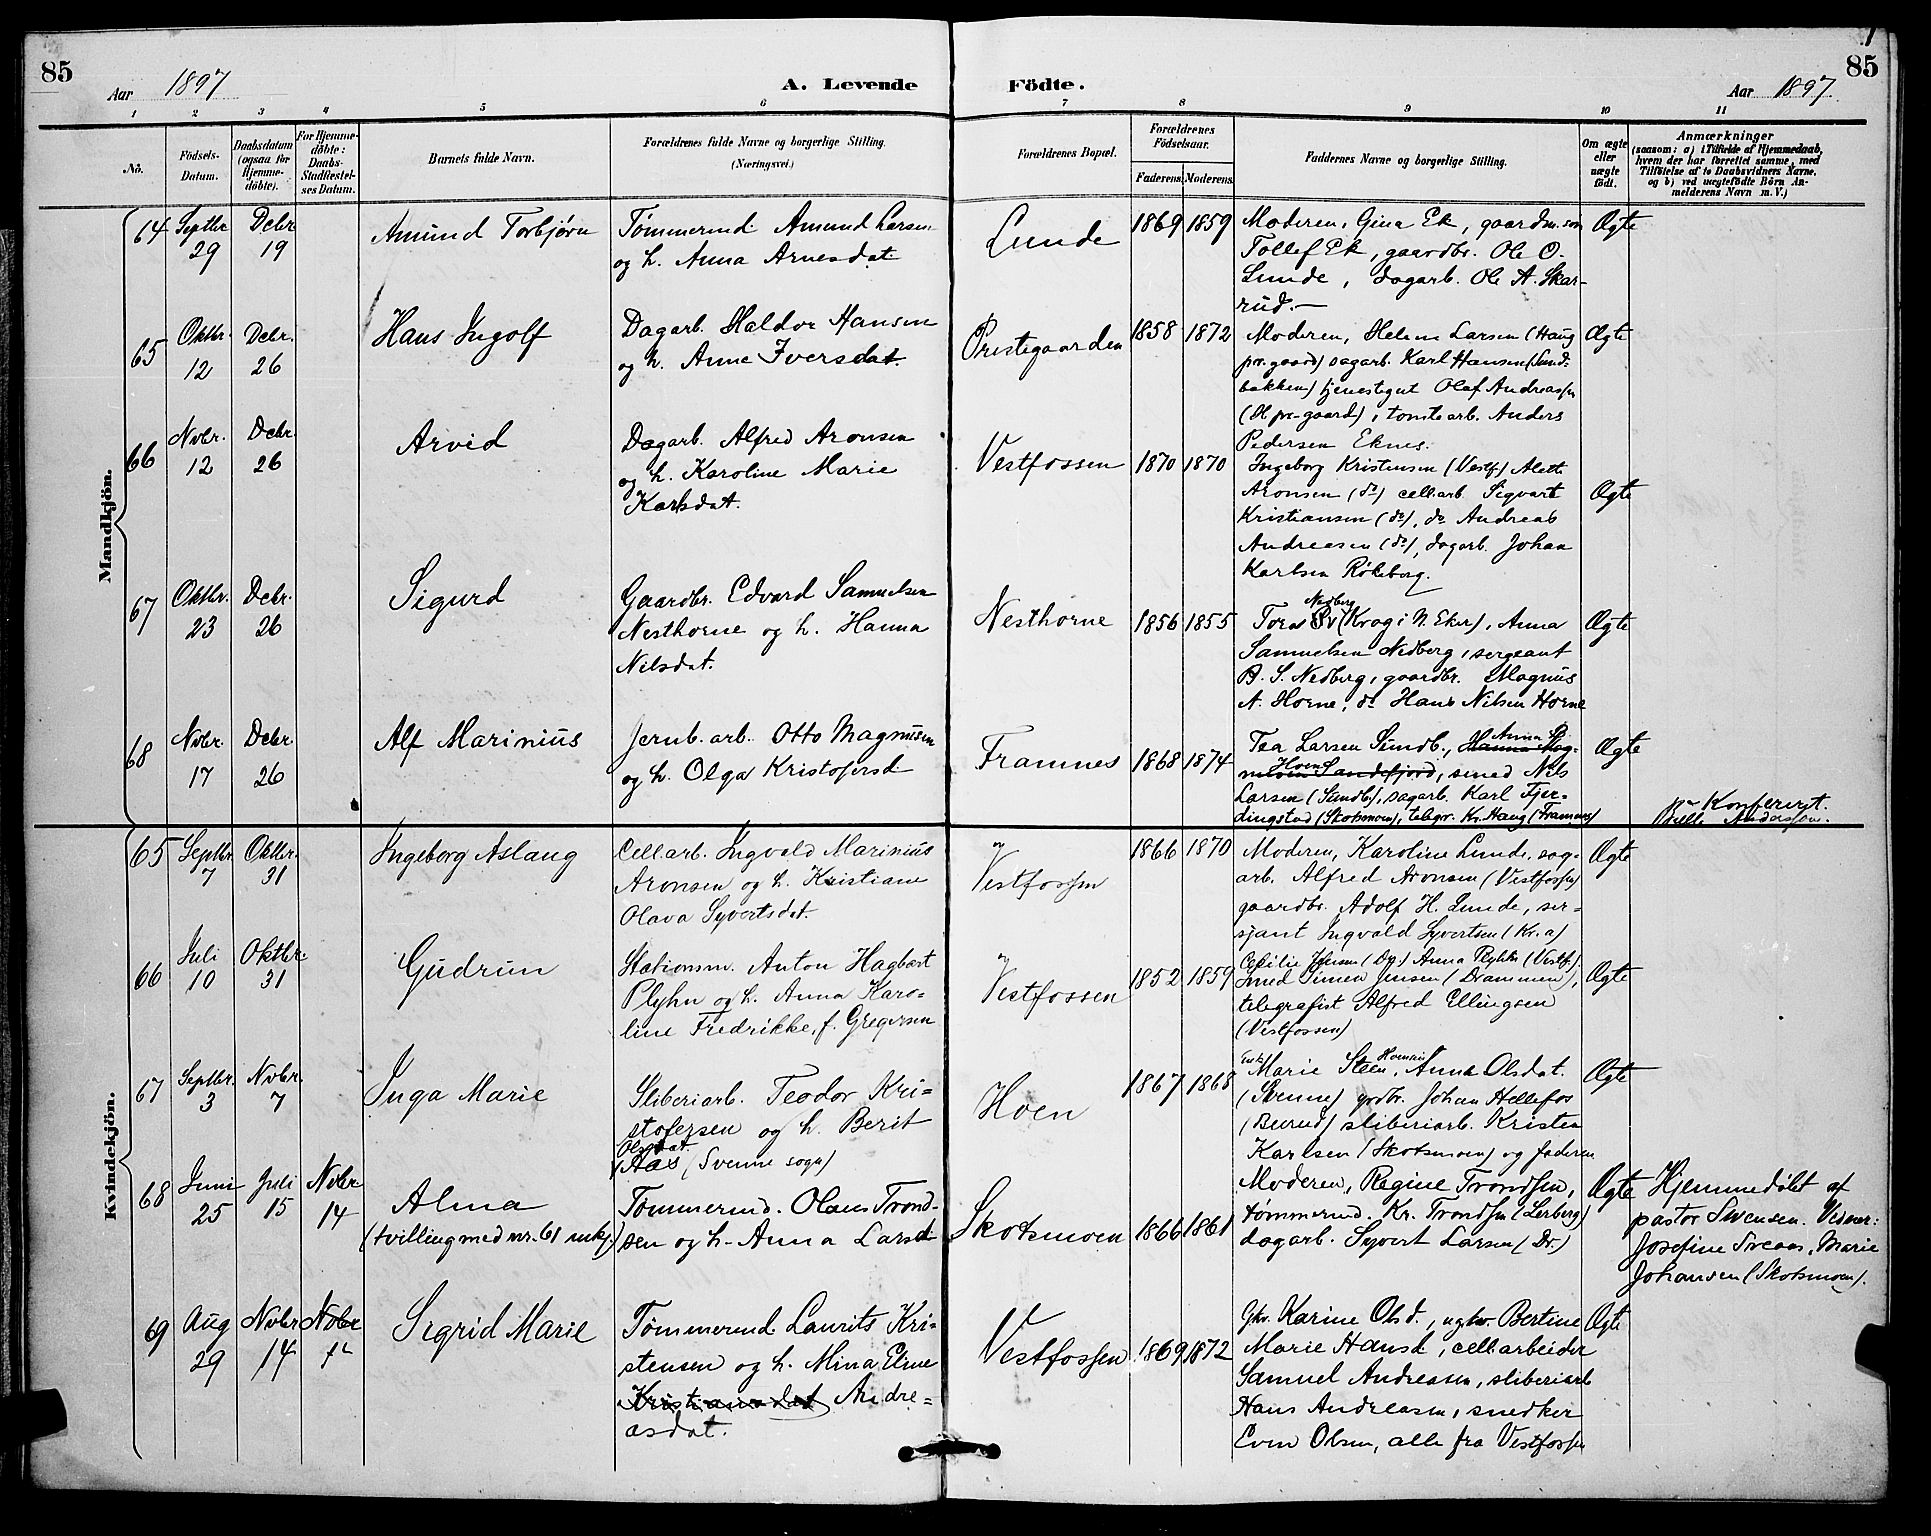 85
Aar 1897
A. Levende
Födte.
Aar 1897.
85
1 2 3 4 5 6 7 8 9 10 11
No.
Födsels-Datum.
Daabsdatum (ogsaa for Hjemme-döbte).
For Hjemme-döbte: Daabs-Stadfæstel-ses Datum.
Barnets fulde Navn.
Forældrenes fulde Navne og borgerlige Stilling.
(Næringsvei.)
Forældrenes Bopæl.
Forældrenes Födselsaar.
Faderens. Moderens.
Faddernes Navne og borgerlige Stilling.
Om ægte eller uægte födt.
Anmærkninger
(saasom: a) i Tilfælde af Hjemmedaab, hvem der har forrettet samme, med Tilföielse af to Daabsvidners Navne, og b) ved uægtefödte Börn An-melderens Navn m. V.)
Mandkjön.
64 Septbr 29 Debr 19
Amund Torbjørn
Tømmermd. Amund Larsen
og h. Anna Arnesdat.
Lunde
1869 1859
Moderen, Gina Ek, gaardm.søn
Tollef Ek, gaardbr. Ole O.
Lunde, dagarb. Ole A. Skar-
rud.
Ægte
65 Oktbr. 12 Debr. 26
Hans Ingolf
Dagarb. Haldor Hansen
og h. Anne Iversdat.
Prestegaarden
1858 1872
Moderen, Helene Larsen (Haug
pr.gaard) sagarb. Karl Hansen (Sund-
bakken) tjenestegut Olaf Andreassen
(H pr-gaard), tomtearb. Anders
Pedersen Eknes.
Ægte
66 Nvbr. 12 Debr. 26
Arvid
Dagarb. Alfred Aronsen
og h. Karoline Marie
Karlsdat.
Vestfossen
1870 1870
Ingeborg Kristensen (Vestf.) Alette
Aronsen (do) cell.arb. Sigvart
Kristiansen (do), do Andreas
Andreasen (do), dagarb. Johan
Karlsen Røkeberg.
Ægte
67 Oktbr. 23 Debr. 26
Sigurd
Gaardbr. Edvard Samuelsen
Nesthorne og h. Hanna
Nilsdat.
Nesthorne
1856 1855
Nedberg
Tora (Krog i N. Eker), Anna
Samuelsen Nedberg, sergeant
A. S. Nedberg, gaardbr. Magnus
A. Horne, do Hans Nilsen Horne
Ægte
68 Nvbr. 17 Debr. 26
Alf Marinius
Jernb. arb. Otto Magnusen
og h. Olga Kristofersd
Framnes
1868 1874
Tea Larsen Sundb., Hanna Mag-
Hoen Sandefjord, smed Nils
Larsen (Sundb.), sagarb. Karl Fjer-
dingstad (Skotsmoen), telegr. Kr. Haug (Framnes)
Ægte
Konfereret.
Kvindekjön.
65 Septbr. 7 Oktbr. 31
Ingeborg Aslaug
Cell.arb. Ingvald Marinius
Aronsen og h. Kristiane
Olava Syvertsdat.
Vestfossen
1866 1870
Moderen, Karoline Lunde, sag-
arb. Alfred Aronsen (Vestfossen)
gaardbr. Adolf H. Lunde, ser-
sjant Ingvald Syvertsen (Kr.a)
Ægte
66 Juli 10 Oktbr. 31
Gudrun
Stationsm. Anton Hagbart
Plyhn og h. Anna Karo-
line Fredrikke, f. Gregersen
Vestfossen
1852 1859
Cecilie Jensen (Do) Anna Plyhn (Vestf.)
smed Simen Jensen (Drammen),
telegrafist Alfred Ellingsen
(Vestfossen)
Ægte
67 Septbr. 3 Nvbr. 7
Inga Marie
Sliberiarb. Teodor Kri-
stofersen og h. Berit
Olsdat.
Aas (Svenne sogn)
Hoen
1867 1868
Enke Marie Steen, Anna Olsdat.
(Svenne) grdbr. Johan Hellefos
(Burud) sliberiarb. Kristen
Karlsen (Skotsmoen) og faderen
Ægte
68 Juni 25 Juli 15 Nvbr 14
Alma
(tvilling med nr. 61 mkj.)
Tømmermd. Olaus Trond-
sen og h. Anna Larsd
Skotsmoen
1866 1861
Moderen, Regine Trondsen,
tømmermd. Kr. Trondsen (Lerberg)
dagarb. Syvert Larsen (Dr.)
Ægte
Hjemmedøbt af
pastor Svensen. Vidner:
Josefine Sveaas, Marie
Johansen (Skotsmoen).
69 Aug 29 Nvbr 14 Nvbr
Sigrid Marie
Tømmermd. Laurits Kri-
stensen og h. Mina Eline
Kristiansdat Andre-
asdat.
Vestfossen
1869 1872
Gkr. Karine Olsd., ugkv. Bertine
Marie Hansd, cell.arbeider
Samuel Andreasen, sliberiarb
Hans Andreasen, snedker
Even Olsen, alle fra Vestfossen
Ægte